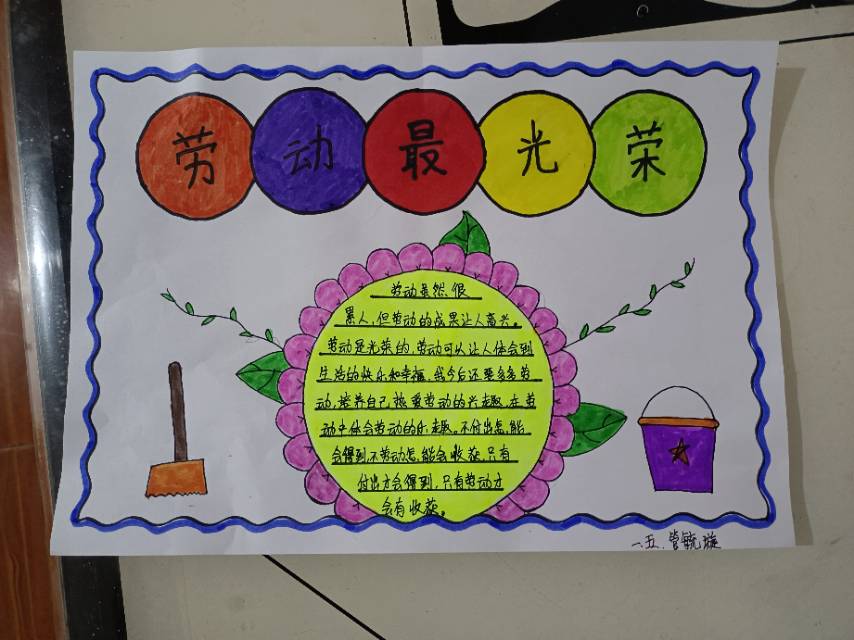 劳动最光荣
劳动虽然很
累人,但劳动的成果让人高兴。
劳动是光荣的,劳动可以让人体会到
生活的快乐和幸福,我今后还要多多劳
动,培养自己热爱劳动的兴趣,在劳
动中体会劳动的乐趣。不付出怎能
会得到,不劳动怎能会收获,只有
付出才会得到,只有劳动才
会有收获。
一.五.管毓璇